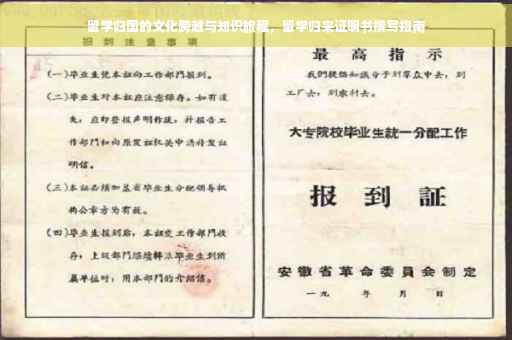 留学归国的文化跨越与知识旅程，留学归来证明书撰写指南
报到注意事项
(一)毕业生凭本证向工作部门报到。
(二)毕业生对本证应注意保存。如有遗
失，应即登报声明作废，并报告工
作部门和向原发证机关申请补发证
明信。
(三)本证必须加盖省毕业生分配领导机
构公章方为有效。
(四)毕业生报到后，本证交工作部门收
存；上级部门
毕业生到所
属单位时，用本部门的介绍信。
最高指示
我们提倡知识分子到群众中去，到
工厂去，到农村去。
大专院校毕业生统一分配工作
报到证
安徽省革命委员会制定
一九 年 月 日